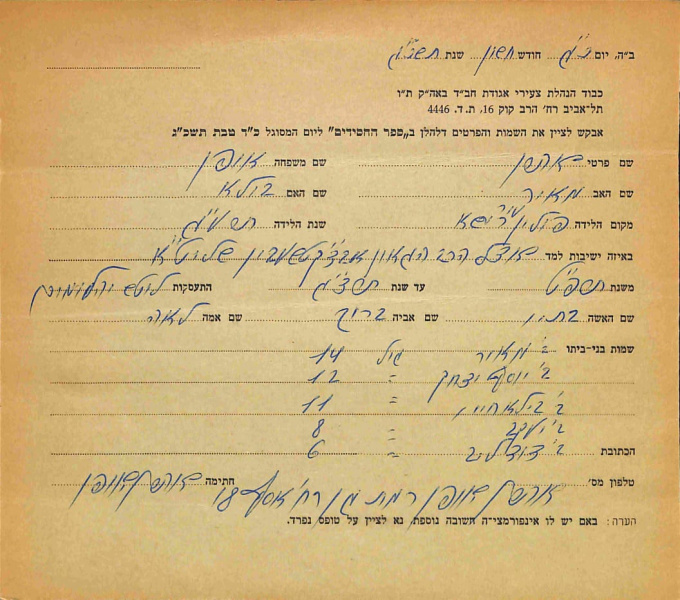 ב"ה, יום כ"ג חודש חשון שנת תשכ"ג
כבוד הנהלת צעירי אגודת חב"ד באה"ק ת"ו
תל-אביב רח' הרב קוק 16, ת. ד. 4446
אבקש לציין את השמות והפרטים דלהלן ב"ספר החסידים" ליום המסוגל כ"ד טבת תשכ"ג
שם פרטי שם משפחה
שם האב מאיר שם האם בילא
מקום הלידה פולין שנת הלידה תשע"ג
באיזה ישיבות למד אצל הרב הגאון שליט"א
משנת תשפ"ט עד שנת תשצ"ג התעסקות
שם האשה שם אביה ברוך שם אמה לאה
שמות בני-ביתו ב' מאיר גיל 14
ב' יוסף יצחק " 12
ב' בילא חי' " 11
ב' יעקב " 8
הכתובת ב' " 6
טלפון מס' חתימה
רמת גן רח' 18
הערה: באם יש לו אינפורמצי-ה חשובה נוספת, נא לציין על טופס נפרד.